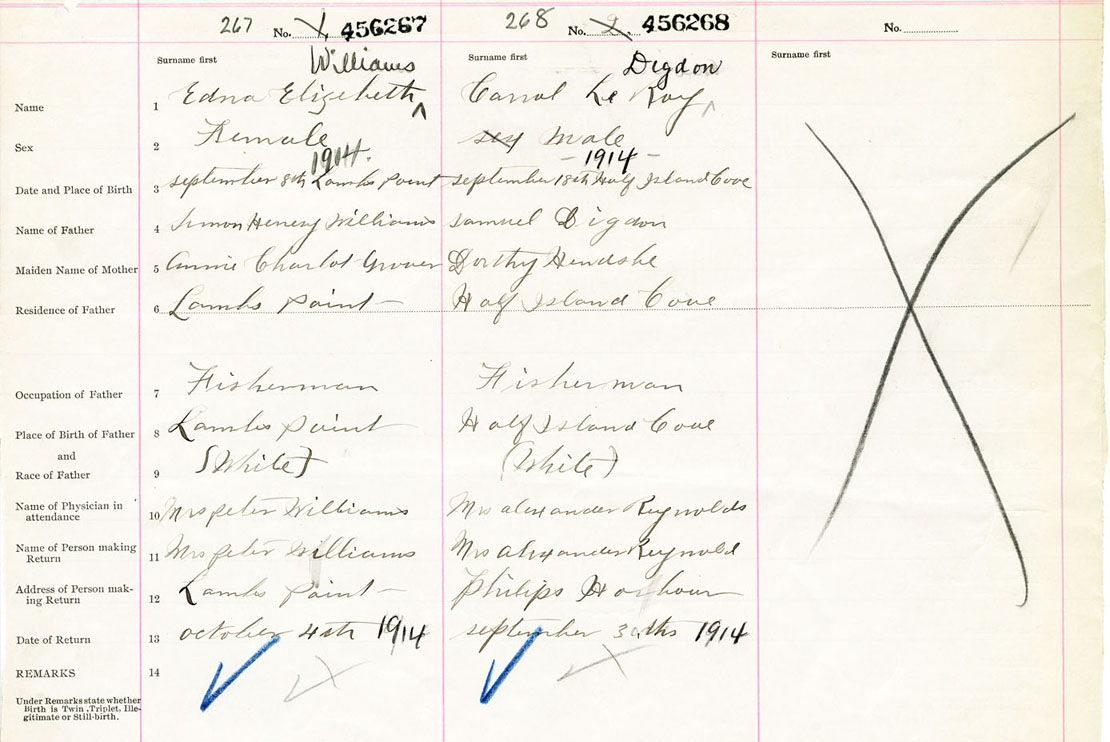 267 No. 1. 456267 268 No. 2. 456268 No.
Surname first Williams Surname first Digdon Surname first
Name 1 Edna Elizebeth ^ Carral Le Roy ^
Sex 2 Female sex male
1914. - 1914 -
Date and Place of Birth 3 september 8th Lambs Point september 18th Half Island Cove
Name of Father 4 Simon Henery Williams samuel Digdon
Maiden Name of Mother 5 Annie Charlot Grover Dorthy Hendsbe
Residence of Father 6 Lambs Point - Half Island Cove
Occupation of Father 7 Fisherman Fisherman
Place of Birth of Father 8 Lambs Point Half Island Cove
and
Race of Father 9 (White) (White)
Name of Physician in
attendance 10 Mrs peter Williams Mrs alexander Reynolds
Name of Person making
Return 11 Mrs peter Williams Mrs alexander Reynold
Address of Person mak-
ing Return 12 Lambs Point - Philips Harbour
Date of Return 13 october 4th 1914 september 30ths 1914
REMARKS 14
Under Remarks state whether
Birth is Twin, Triplet, Ille-
gitimate or Still-birth.